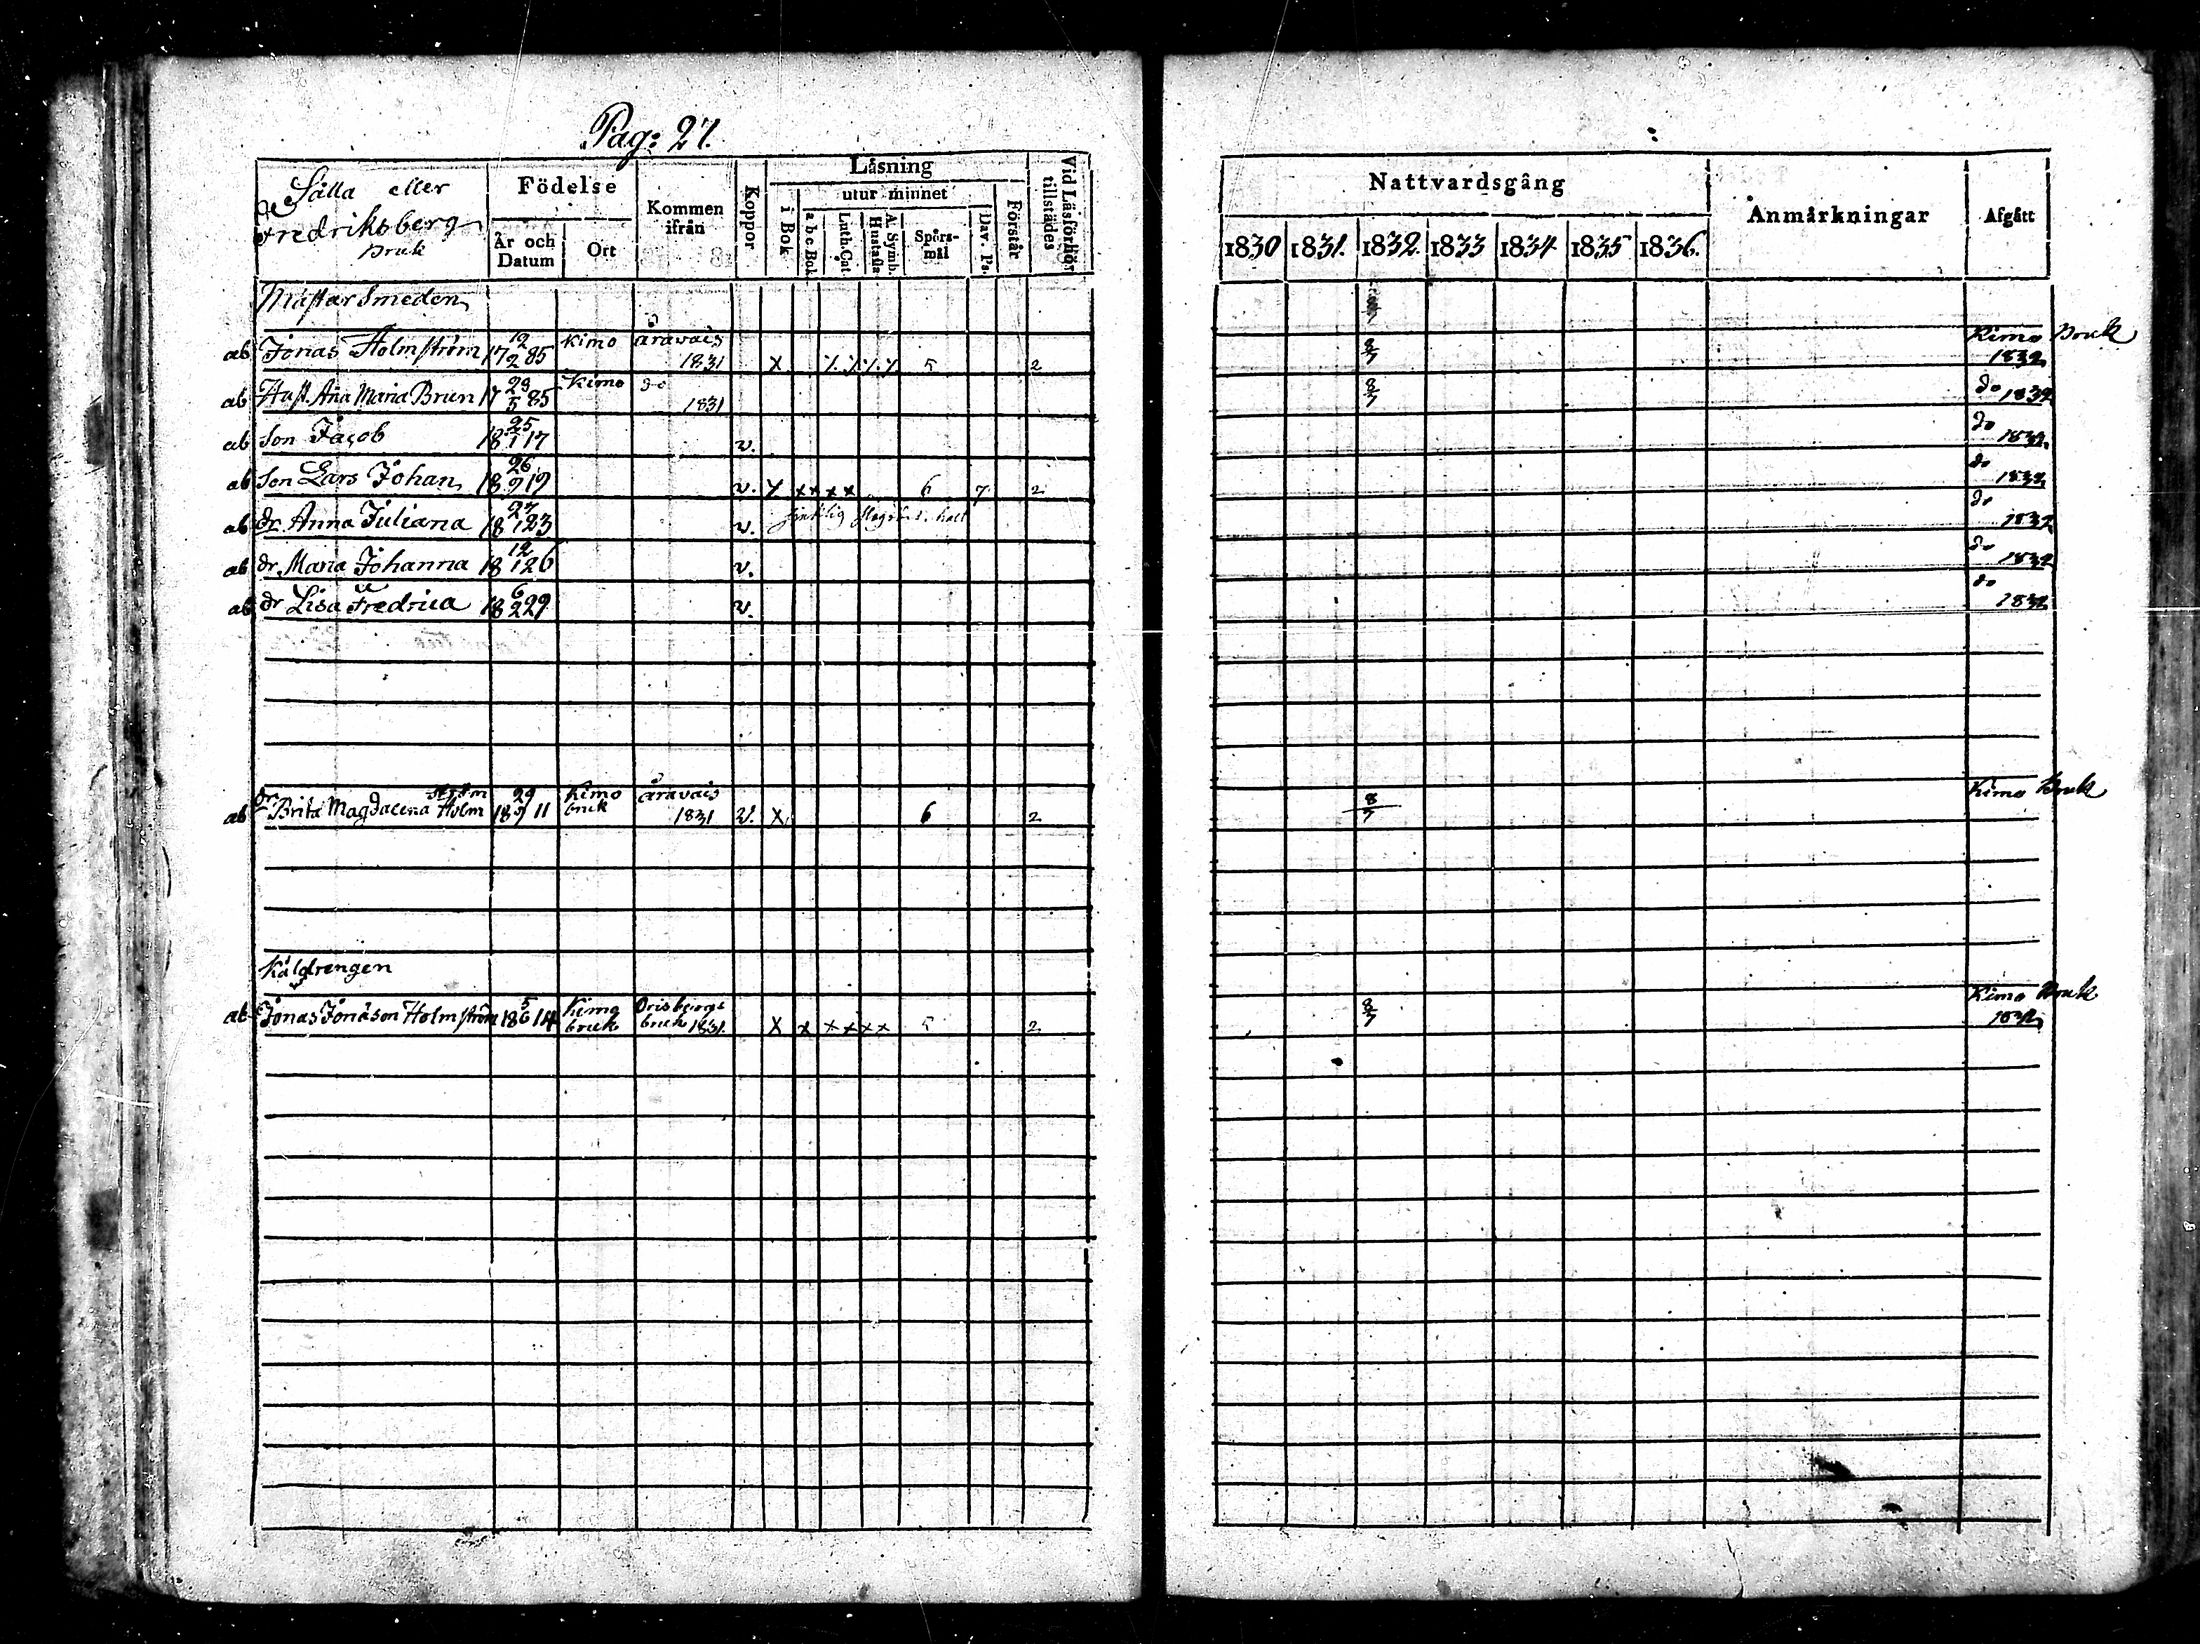 Pag: 27.
Sålla eller
Fredriksberg
Bruk
Födelse
År och
Datum
Ort
Kommen
ifrån
Koppor
Läsning
i Bok
utur minnet
a b c Bok.
Luth. Cat.
Hustafla
A. Symb.
Spörs-
mål
Dav. Ps.
Förstår
Vid Läsförhör
tillstädes
Nattvardsgång
1830 1831. 1832. 1833 1834 1835 1836.
Anmärkningar
Afgått
Mästar Smeden
ab Jonas Holmström 17 12/2 85 Kimo Åravais 1831 X 5 2 8/7 Kimo Bruk 1832
ab Hust. Ana Maria Brun 17 29/5 85 Kimo do 1831 8/7 do 1832
ab Son Jacob 18 25/1 17 v. do 1832
ab Son Lars Johan 18 26/9 19 v. x x x x x 6 7 2 do 1832
ab dr. Anna Juliana 18 27/1 23 v. do 1832
ab dr. Maria Johanna 18 12/1 26 v. do 1832
ab dr Lisa Fredrica 18 6/2 29 v. do 1832
ab dr Brita Magdalena Holmström 18 29/9 11 Kimo bruk Åravais 1831 v. x 6 2 8/7 Kimo Bruk
Kåldrengen
ab Jonas Jonasson Holmström 18 5/6 14 Kimo bruk Orisbergs bruk 1831 X x x x x x 5 2 8/7 Kimo Bruk 1832